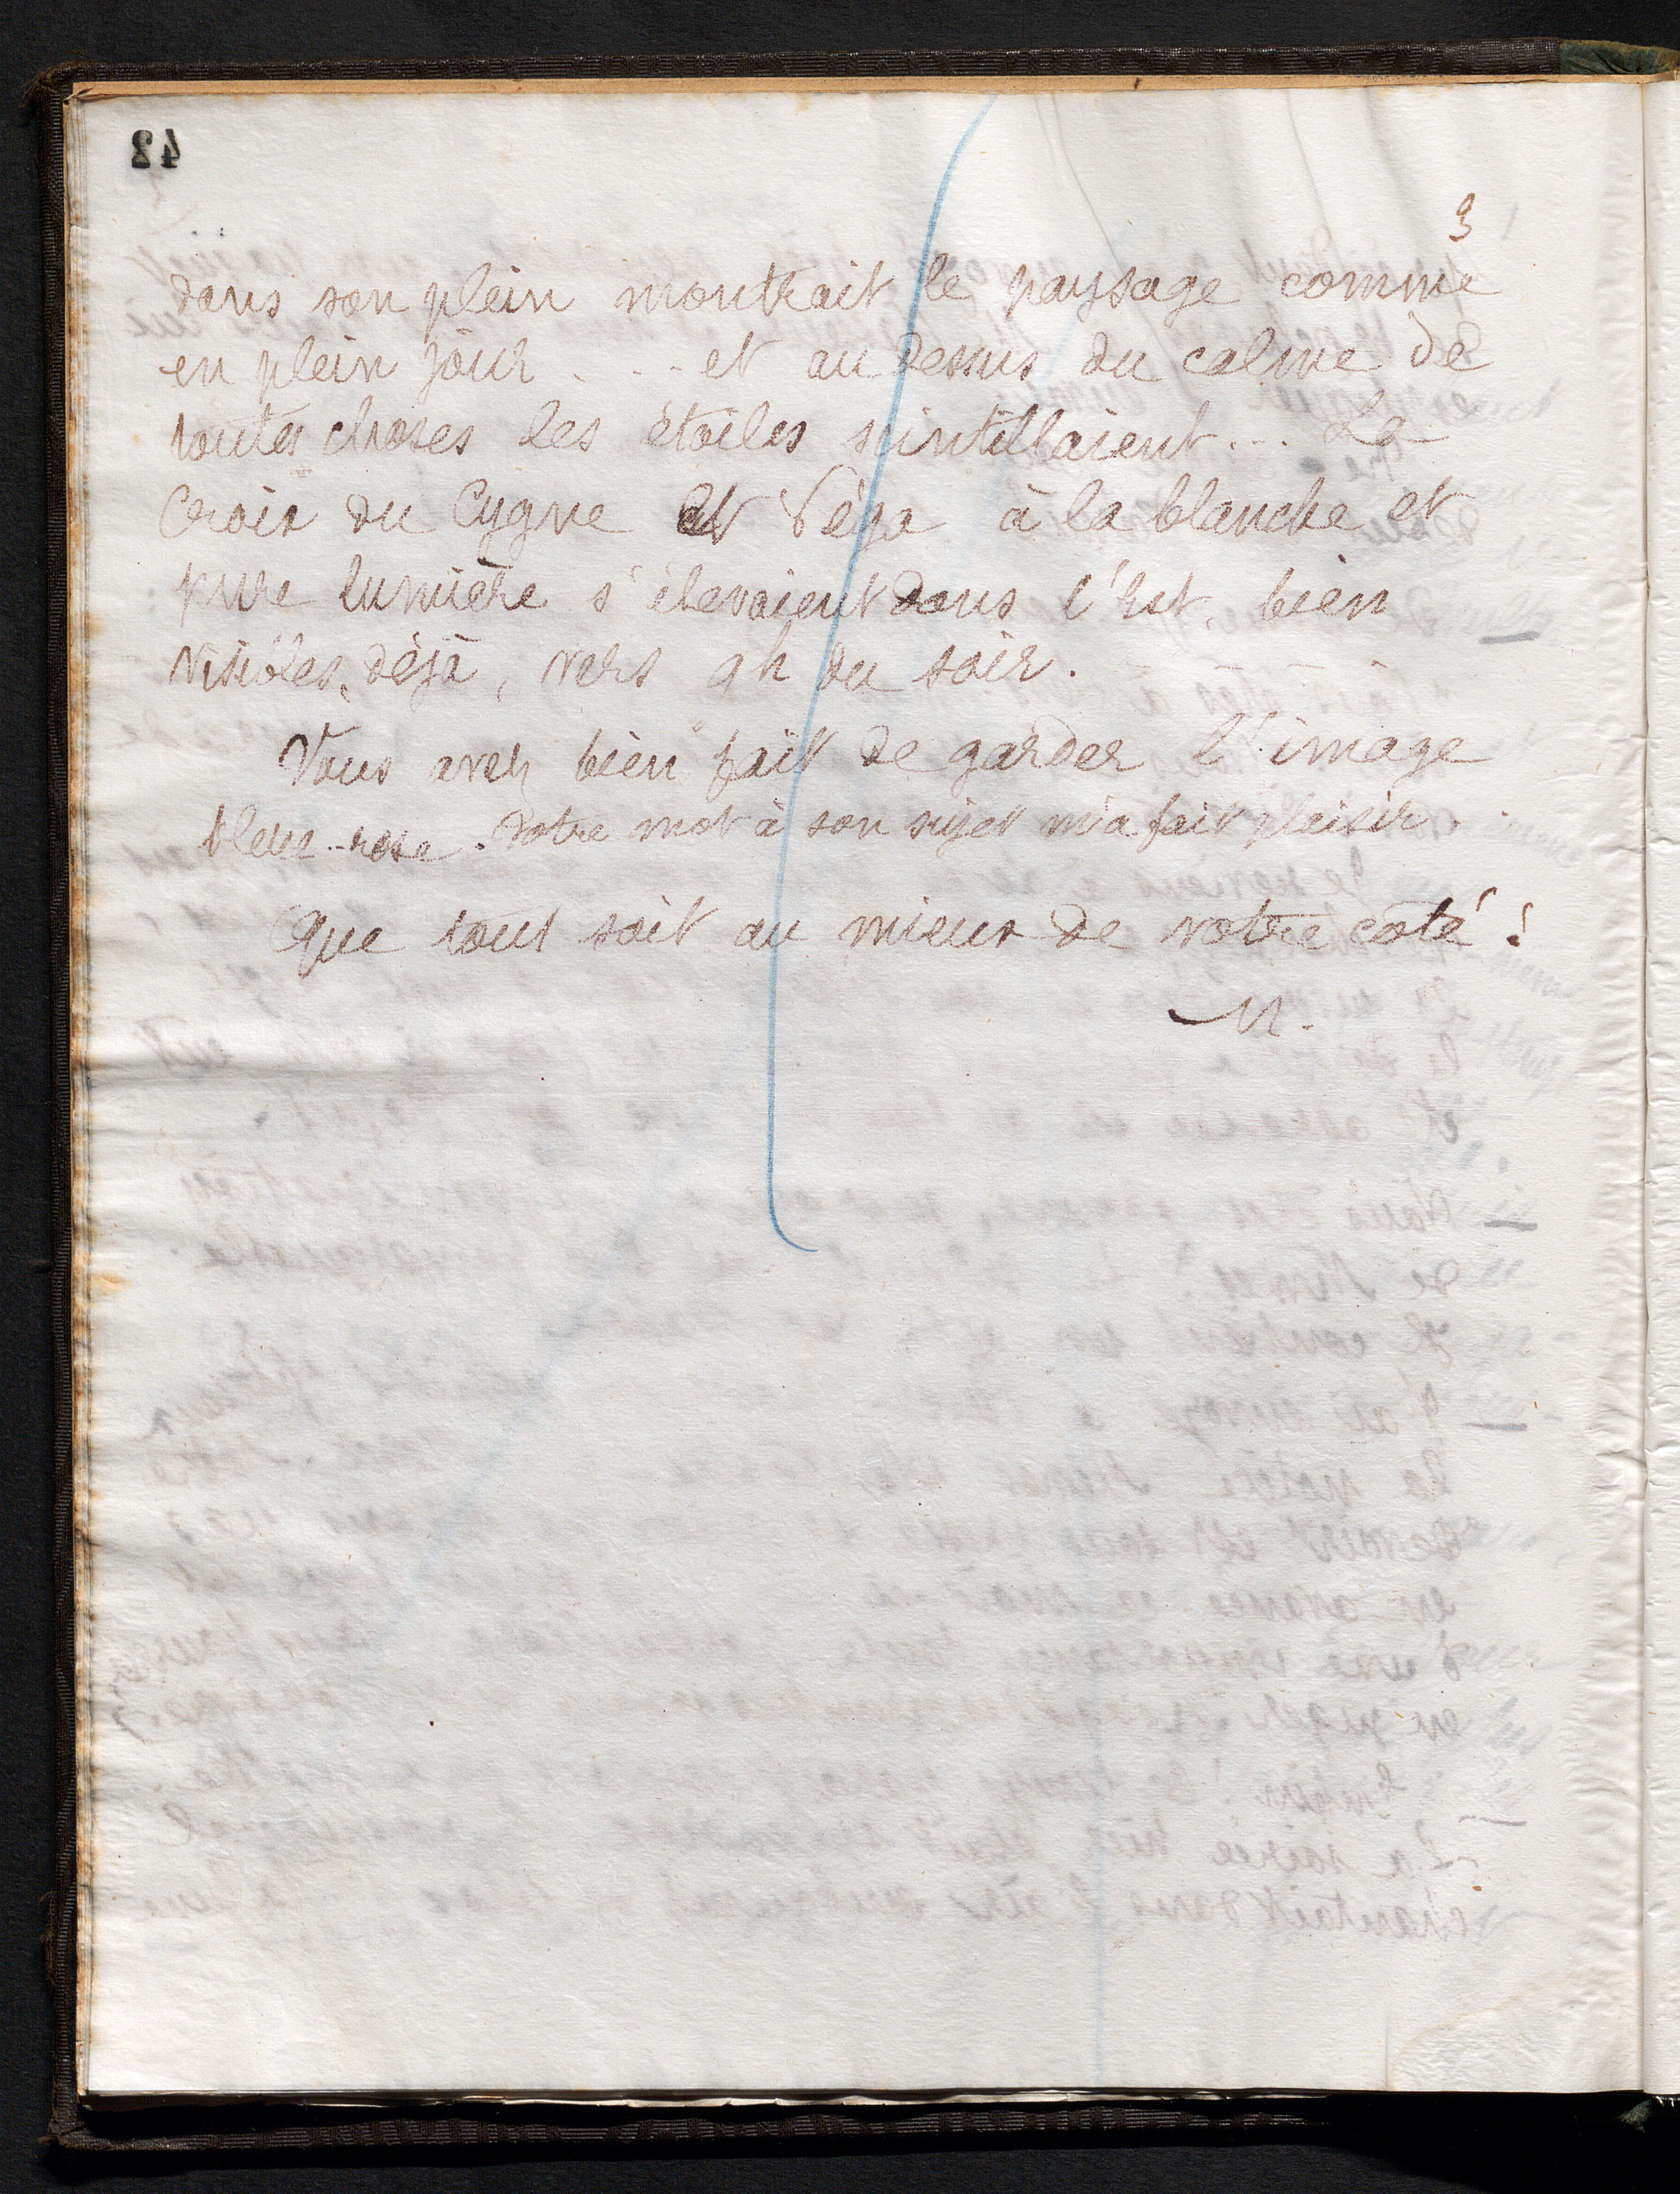 3
dans son plein montrait le paysage comme
en plein jour . . . et au dessus du calme de
toutes choses les étoiles sintillaient... La
Croix du Cygne et Véga à la blanche et
pure lumière s'élevaient dans l'Est, bien
visibles, déjà, vers 9h du soir.
Vous avez bien fait de garder l'image
bleue-rose. Votre mot à son sujet m'a fait plaisir.
Que tout soit au mieux de votre coté!
M.